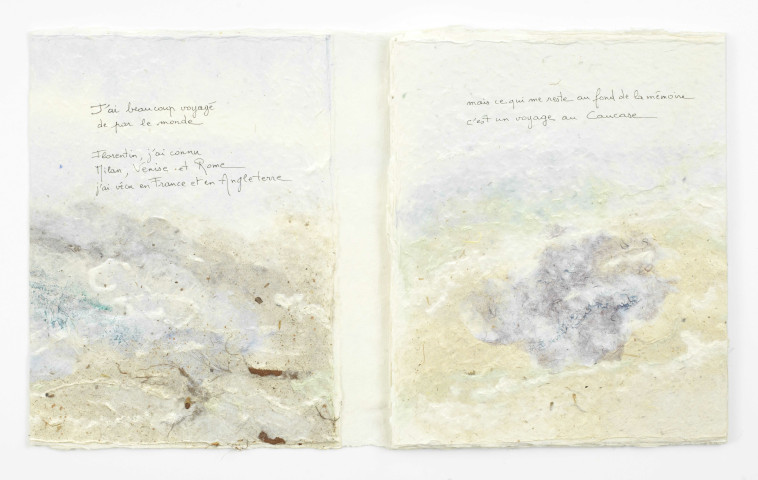 J'ai beaucoup voyagé
de par le monde
Florentin, j'ai connu
Milan, Venise et Rome
j'ai vécu en France et en Angleterre
mais ce qui me reste au fond de la mémoire
c'est un voyage au Caucase